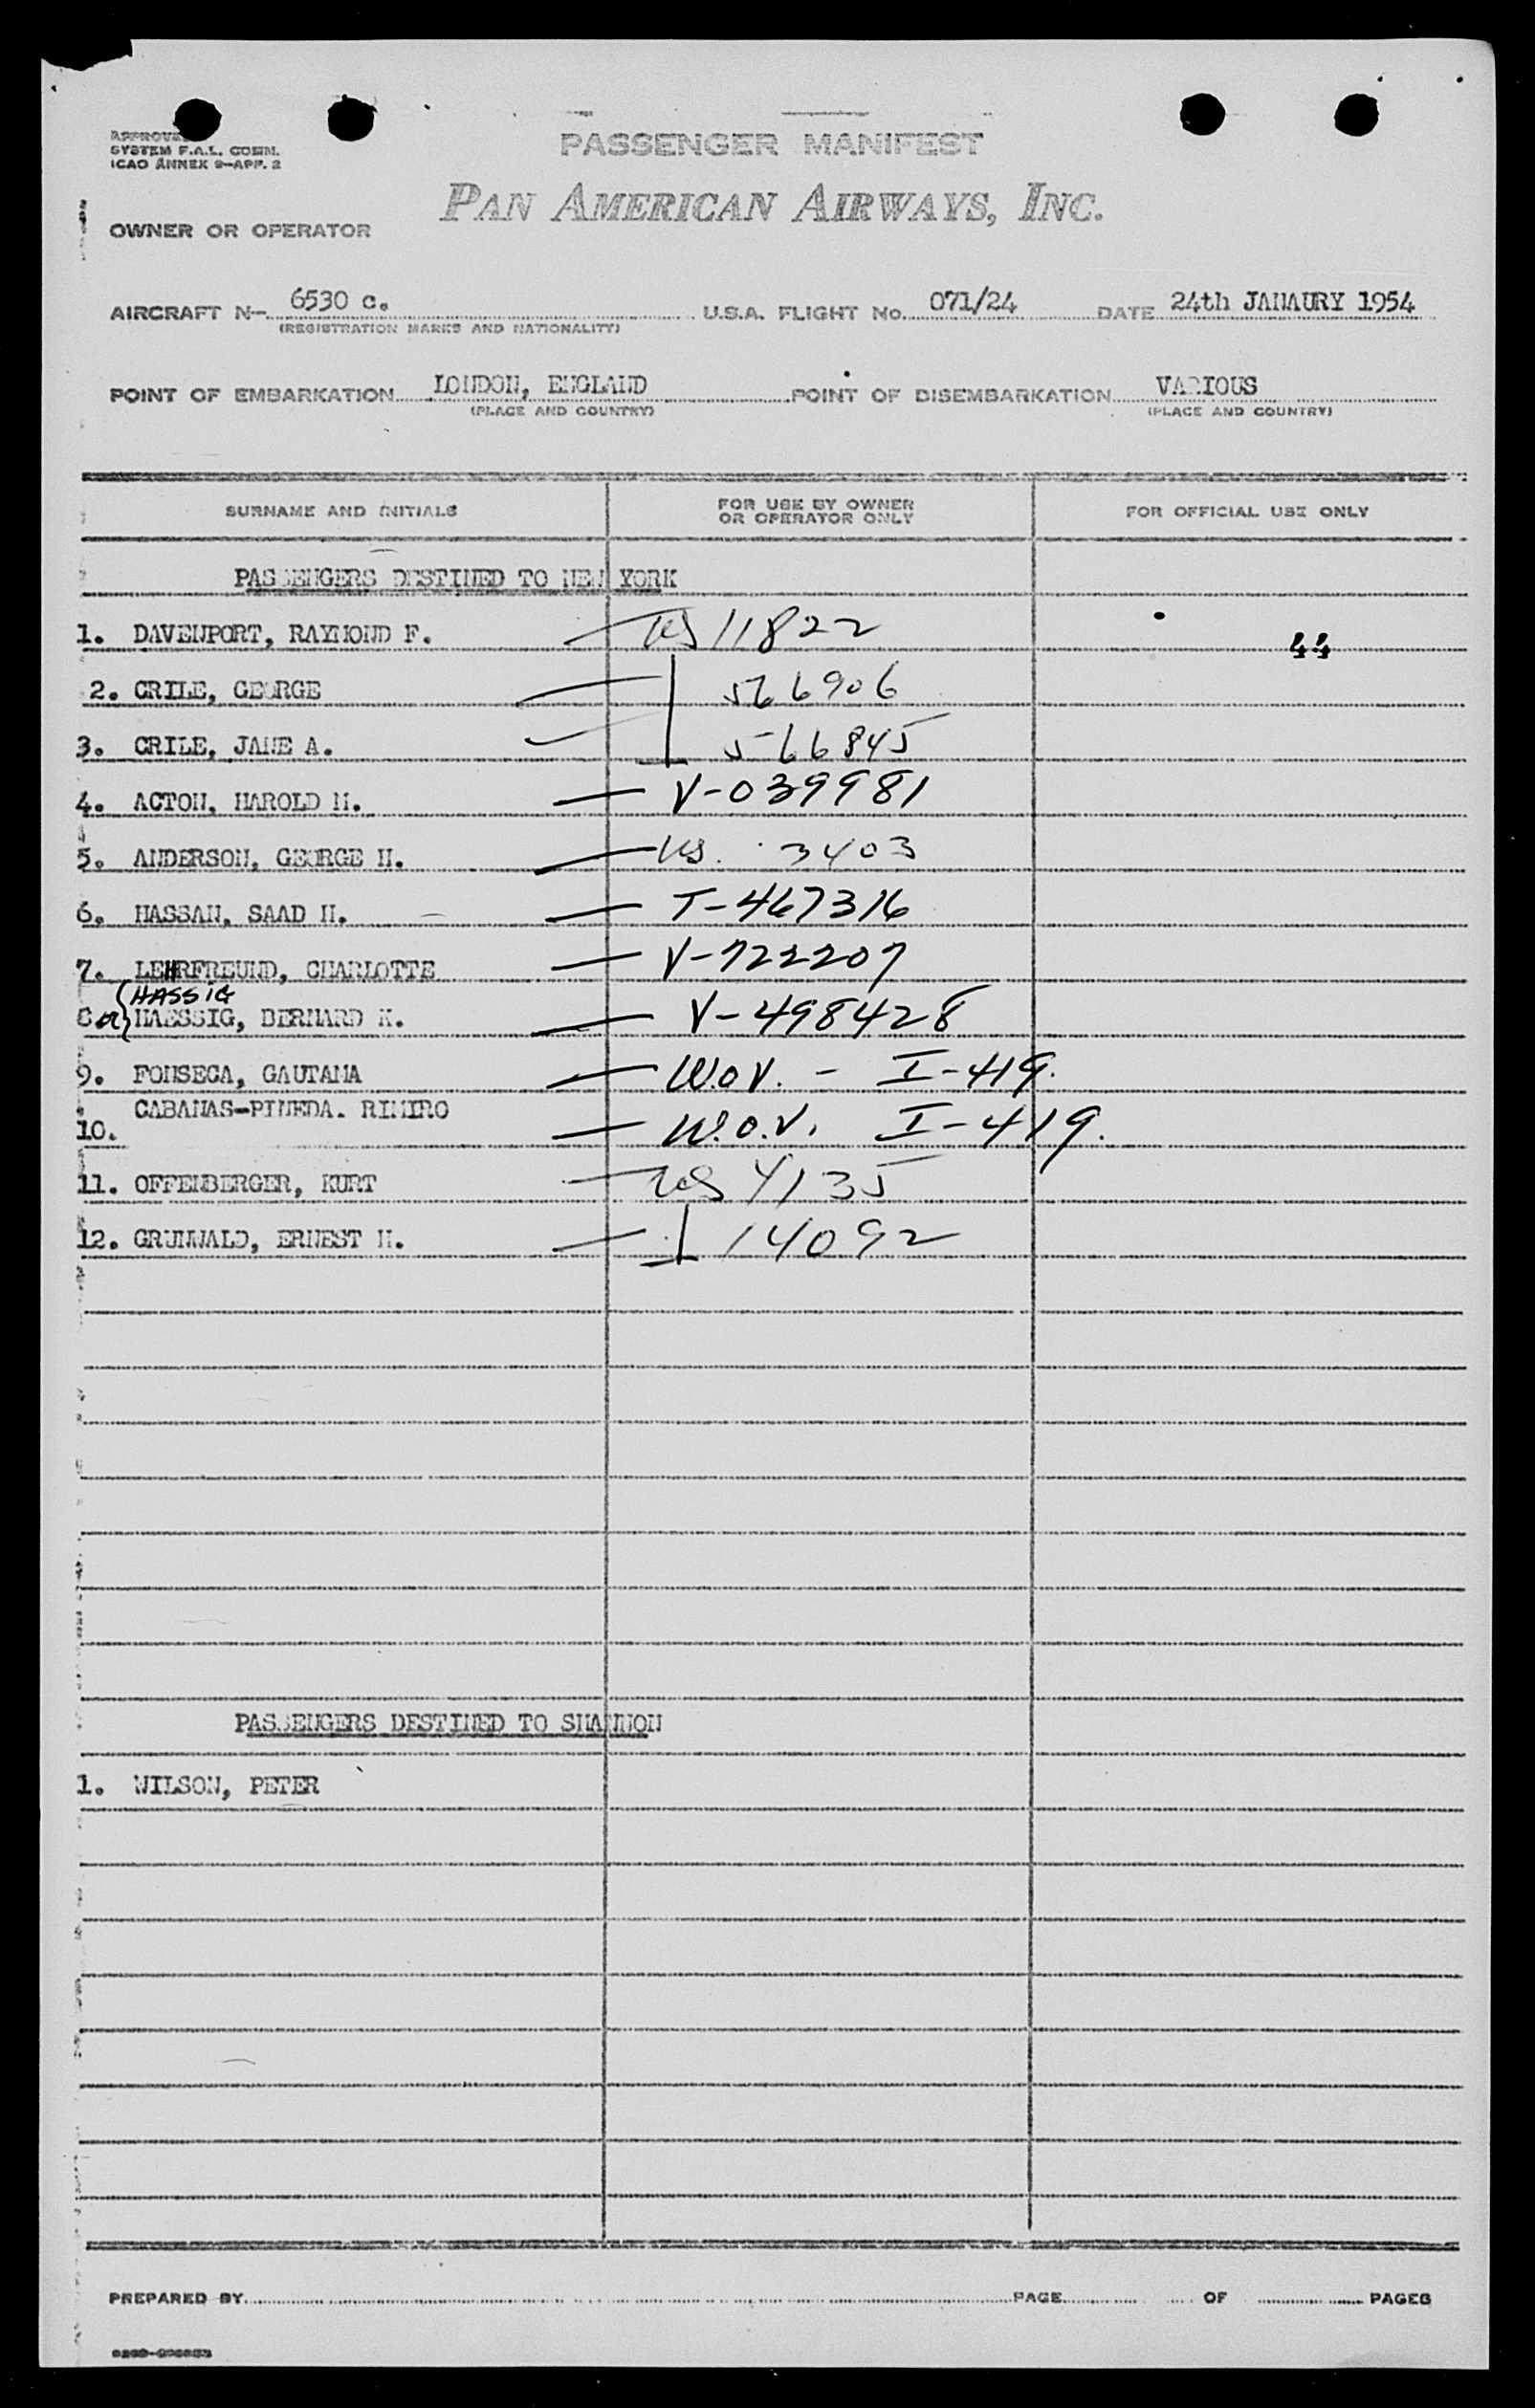 PASSENGER MANIFEST
APPROVED
SYSTEM F.A.L. COMM.
ICAO ANNEX 9-APP. 2
PAN AMERICAN AIRWAYS, INC.
OWNER OR OPERATOR
AIRCRAFT N- 6530 c. U.S.A. FLIGHT No. 071/24 DATE 24th JANAURY 1954
(REGISTRATION MARKS AND NATIONALITY)
POINT OF EMBARKATION LONDON, ENGLAND POINT OF DISEMBARKATION VARIOUS
(PLACE AND COUNTRY) (PLACE AND COUNTRY)
SURNAME AND INITIALS FOR USE BY OWNER OR OPERATOR ONLY FOR OFFICIAL USE ONLY
PASSENGERS DESTINED TO NEW YORK
1. DAVENPORT, RAYMOND F. — US 11822 44
2. CRILE, GEORGE — 566906
3. CRILE, JANE A. — 566845
4. ACTON, HAROLD M. — V-039981
5. ANDERSON, GEORGE H. — US. 3403
6. HASSAN, SAAD H. — T-467316
7. LEHRFREUND, CHARLOTTE — V-722207
HASSIG
8. or HAESSIG, BERNARD K. — V-498428
9. FONSECA, GAUTAMA — W.O.V. - I-419.
10. CABANAS-PINEDA. RIMIRO — W.O.V. I-419.
11. OFFENBERGER, KURT — US 4135
12. GRUNWALD, ERNEST M. — 14092
PASSENGERS DESTINED TO SHANNON
1. WILSON, PETER
PREPARED BY PAGE OF PAGES